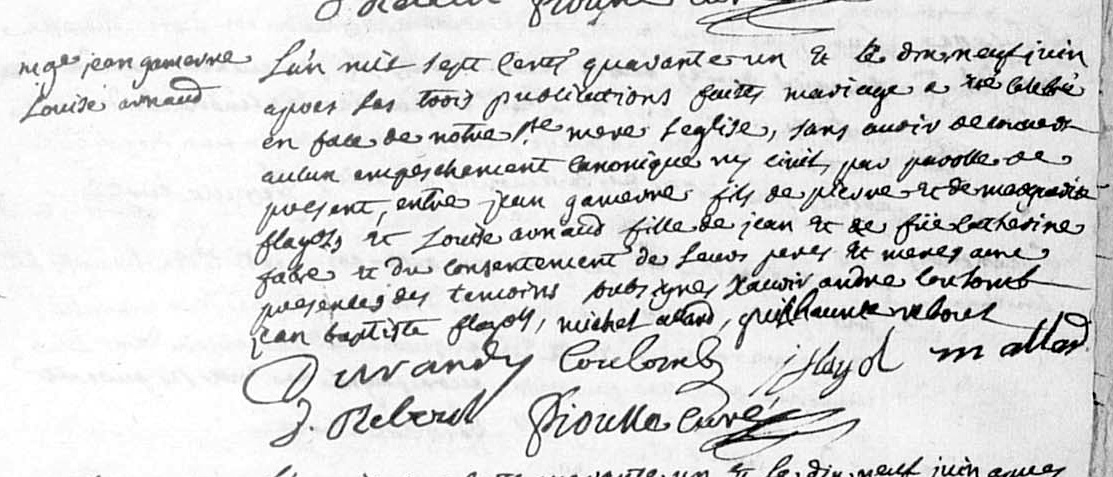 mge jean gamerre
Louise arnaud
L'an mil sept cents quarante un et le dix neuf juin
apres les trois publications faites mariage a été celebré
en face de notre ste mere l'eglise, sans avoir decouvert
aucun empeschement canonique ny civil, par parolle de
present, entre jean gamerre fils de pierre et de margueritte
flayols et Louise arnaud fille de jean et de füe catherine
favre et du consentement de leurs peres et meres ame
presences des temoins soubsignes sçavoir andre coulomb
jean baptiste flayols, michel allard, guilhaume rebout
Durandy Coulomb j flayol m allard
J. Reboul curé
L'an mil sept cents quarante un et le dix neuf juin apres